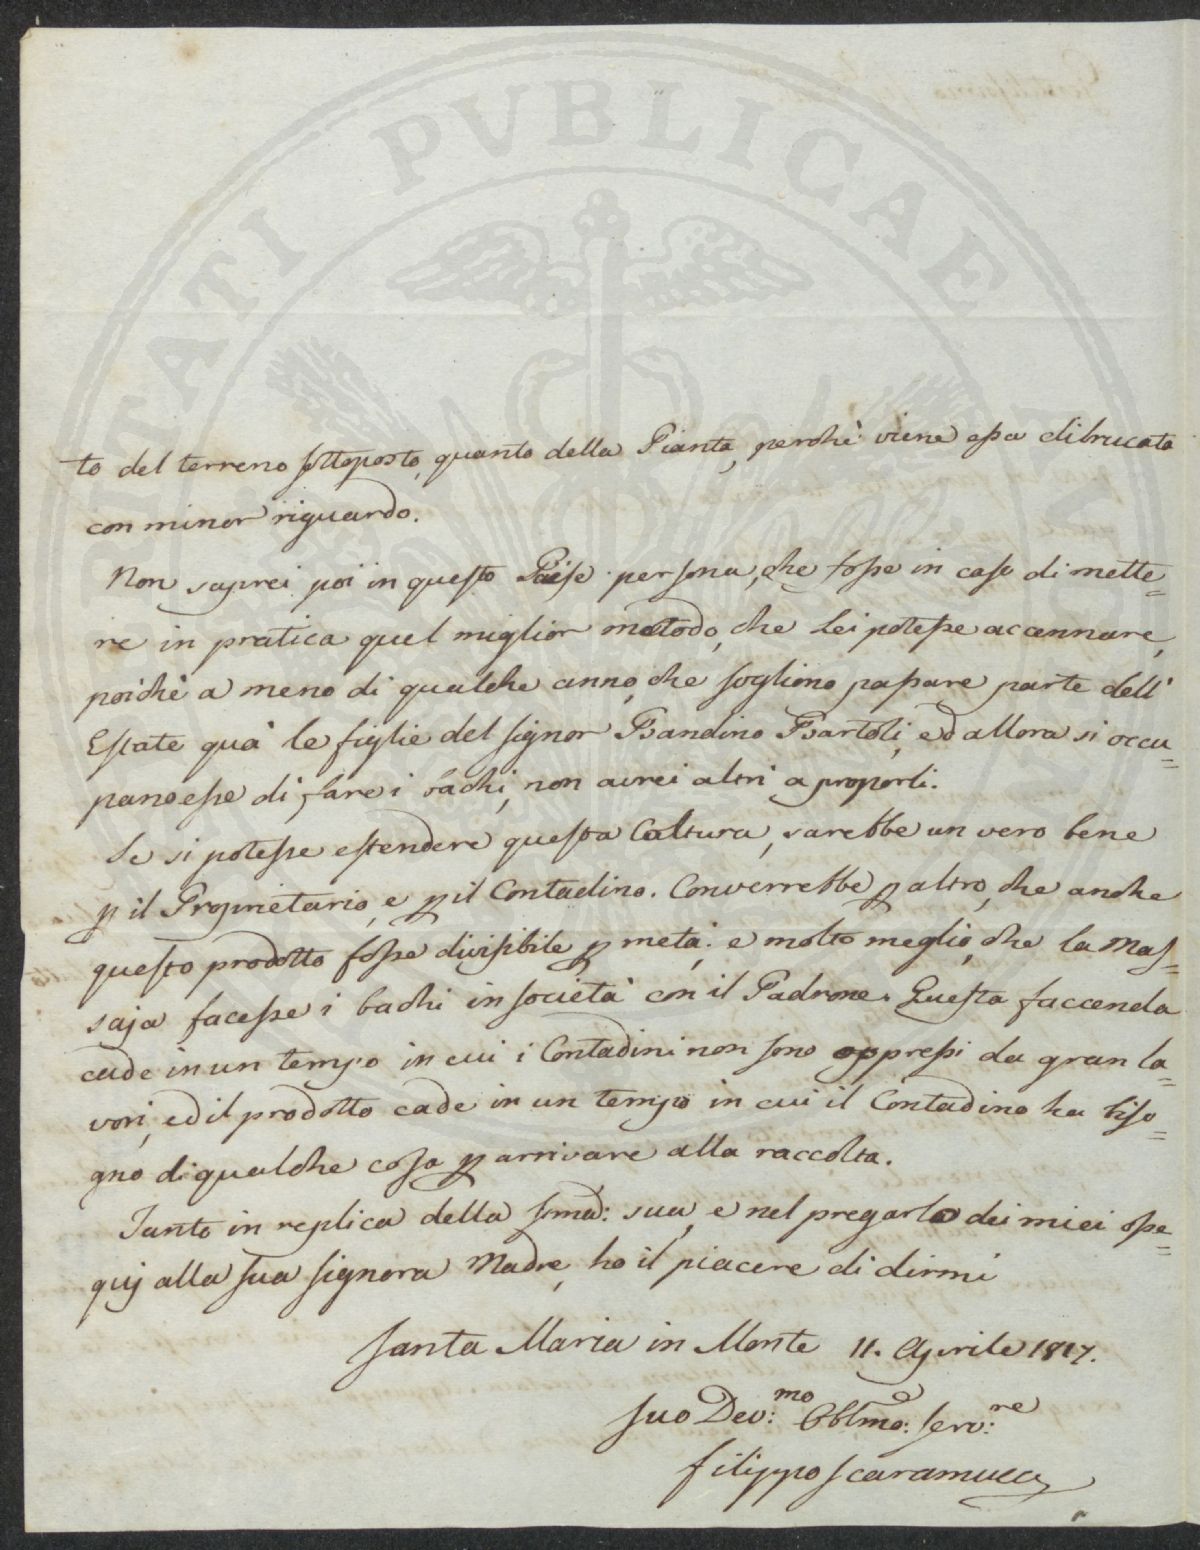 to del terreno sottoposto, quanto della Pianta, perchè viene essa dibrucata
con minor riguardo.
Non saprei poi in questo Paese persona, che fosse in caso di mette=
re in pratica quel miglior metodo, che Lei potesse accennare,
poichè a meno di qualche anno, che sogliono passare parte dell'
Estate quà le figlie del Signor Bandino Bartoli, ed allora si occu=
pano esse di fare i bachi, non avrei altri a proporli.
Se si potesse estendere questa Coltura, sarebbe un vero bene
p il Proprietario, e p il Contadino. Converrebbe p altro, che anche
questo prodotto fosse divisibile p metà: e molto meglio, che la Mas=
saja facesse i bachi in società con il Padrone. Questa faccenda
cade in un tempo in cui i Contadini non sono oppressi da gran la=
vori, ed il prodotto cade in un tempo in cui il Contadino ha biso=
gno di qualche cosa p arrivare alla raccolta.
Tanto in replica della sua, e nel pregarlo dei miei osse=
quj alla sua Signora Madre, ho il piacere di dirmi
Santa Maria in Monte 11. Aprile 1817.
Suo Dev:mo Obblmo: Serv:re
Filippo Scaramucci
PUBLICAE